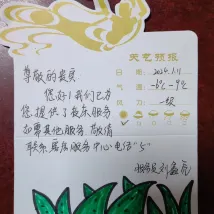 天气预报
尊敬的贵宾
日期: 2024.1.11
您好!我们已为
气温: -6℃~9℃
您提供了夜床服务
风力: 一级
如需其他服务 敬请
联系 居店服务中心电话"5"
服务员